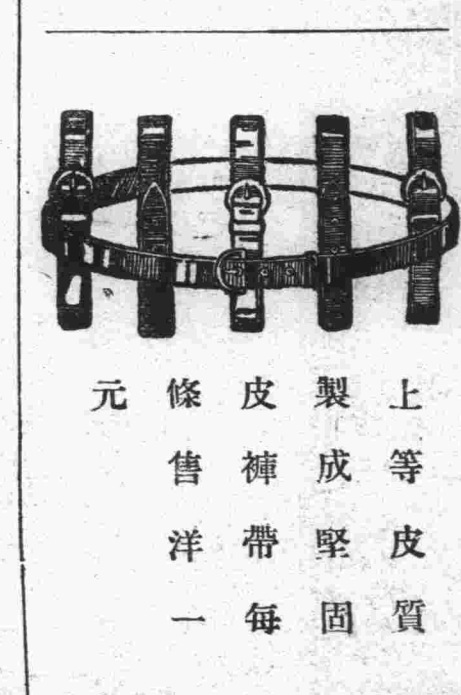 上等皮質
製成堅固
皮褲帶每
條售洋一
元